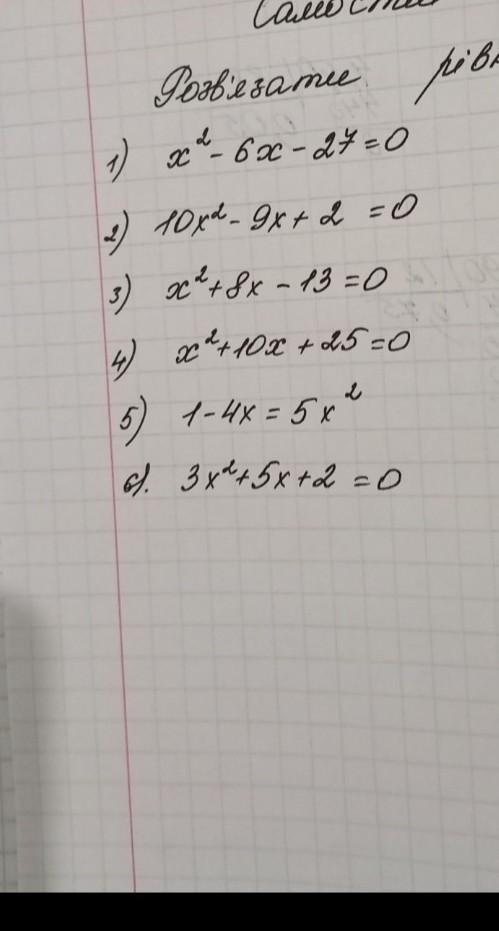 Розв'язати
1) x² - 6x - 27 = 0
2) 10x² - 9x + 2 = 0
3) x² + 8x - 13 = 0
4) x² + 10x + 25 = 0
5) 1 - 4x = 5x²
6). 3x² + 5x + 2 = 0